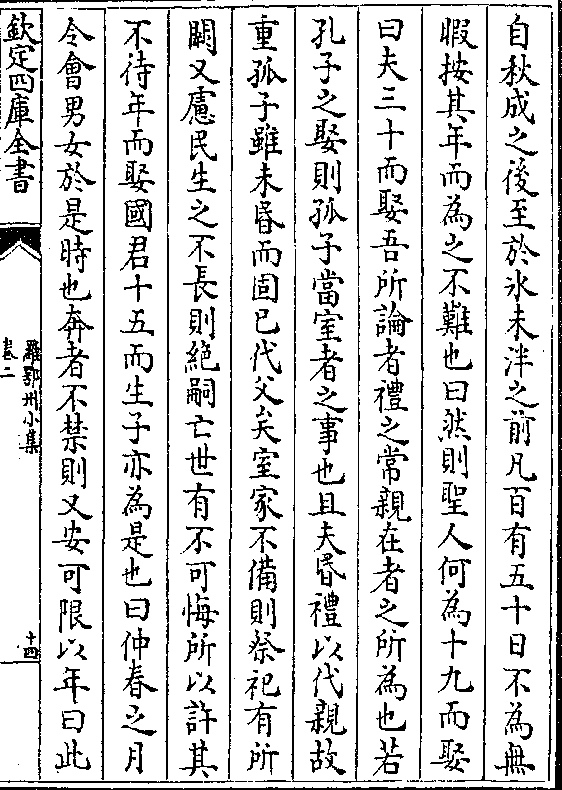 自秋成之後至於氷未泮之前凡百有五十日不為無
暇按其年而為之不難也曰然則聖人何為十九而娶
曰夫三十而娶吾所論者禮之常親在者之所為也若
孔子之娶則孤子當室者之事也且夫昬禮以代親故
重孤子雖未昬而固已代父矣室家不備則祭祀有所
闕又慮民生之不長則絶嗣亡世有不可悔所以許其
不待年而娶國君十五而生子亦為是也曰仲春之月
令會男女於是時也奔者不禁則又安可限以年曰此
欽定四庫全書
羅鄂州小集
卷二
十四